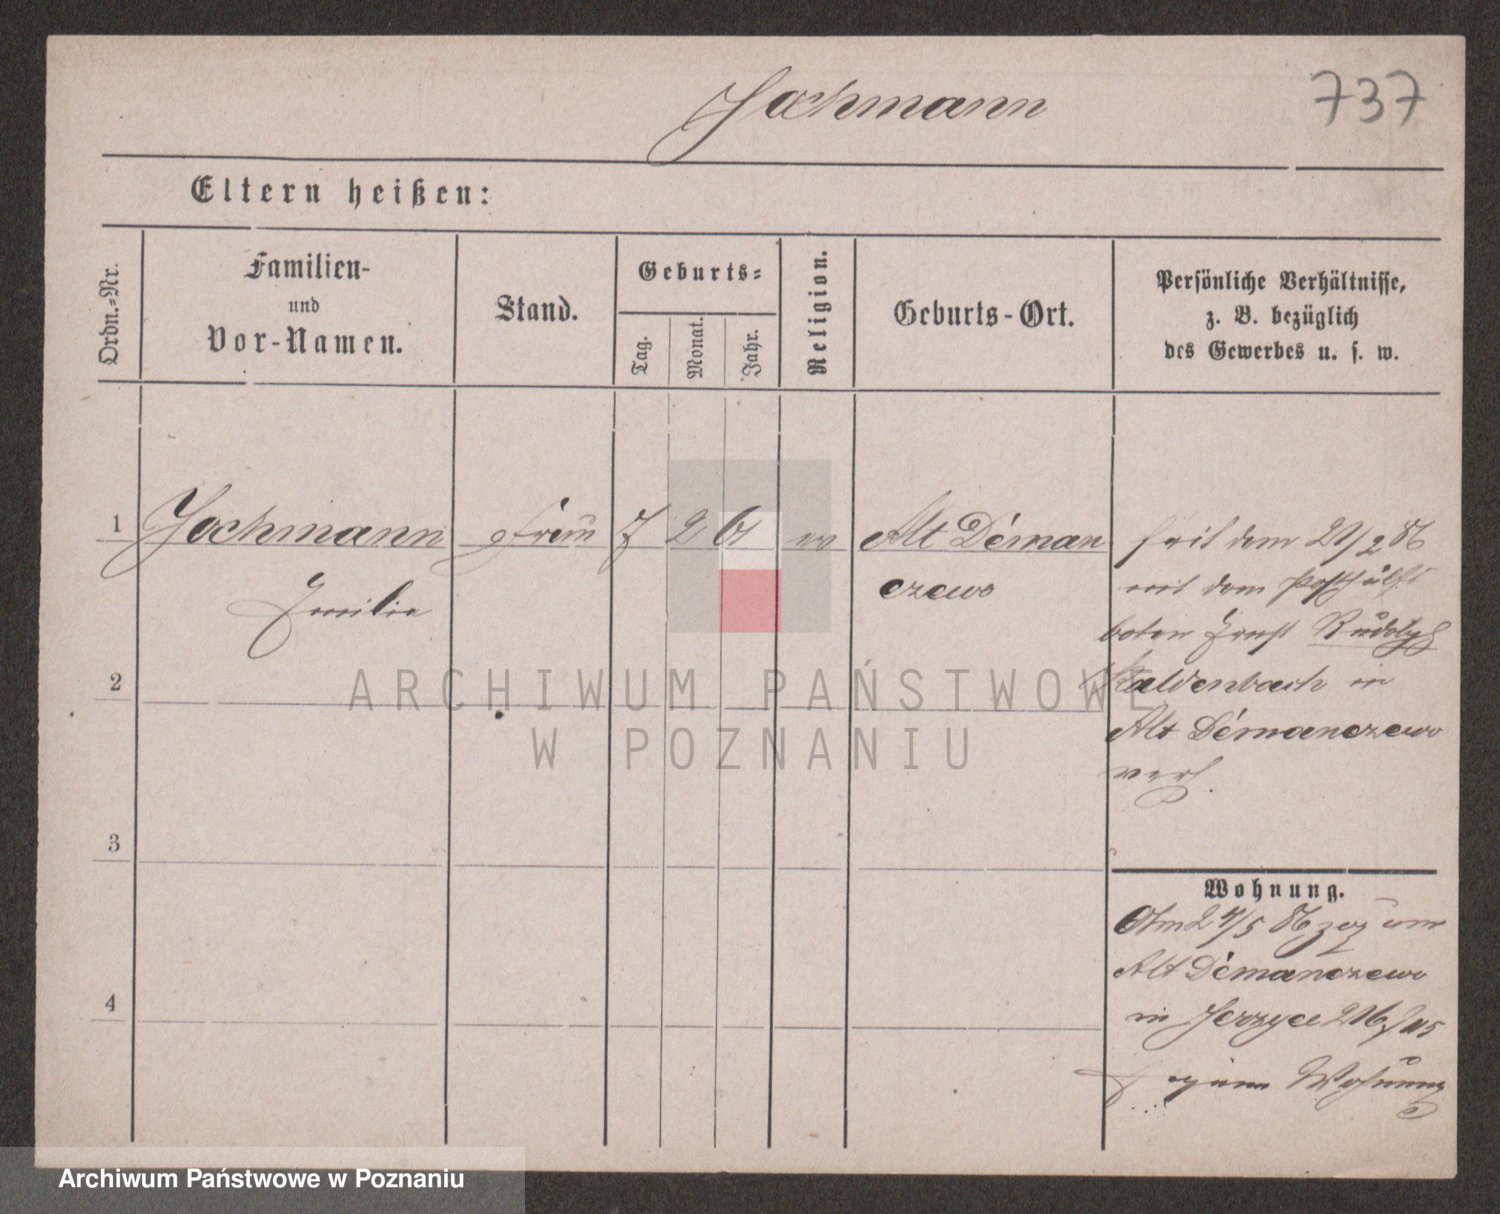 Jochmann
737
Eltern heißen:
Ordn.-Nr.
Familien-
und
Vor-Namen.
Stand.
Geburts-
Tag.
Monat.
Jahr.
Religion.
Geburts-Ort.
Persönliche Verhältnisse,
z. B. bezüglich
des Gewerbes u. s. w.
1 Jochmann 7 2 ev Alt Déman
Emilie
czewo
seit dem 21/2 86
mit dem Posthülfs
boten Ernst Rudolph
Kaldenbach in
Alt Démanczewo
verh.
2
3
4
Wohnung.
Am 24/5 86 zog von
Alt Démanczewo
in Jerzyce
Wohnung
ARCHIWUM PAŃSTWOWE
W POZNANIU
Archiwum Państwowe w Poznaniu